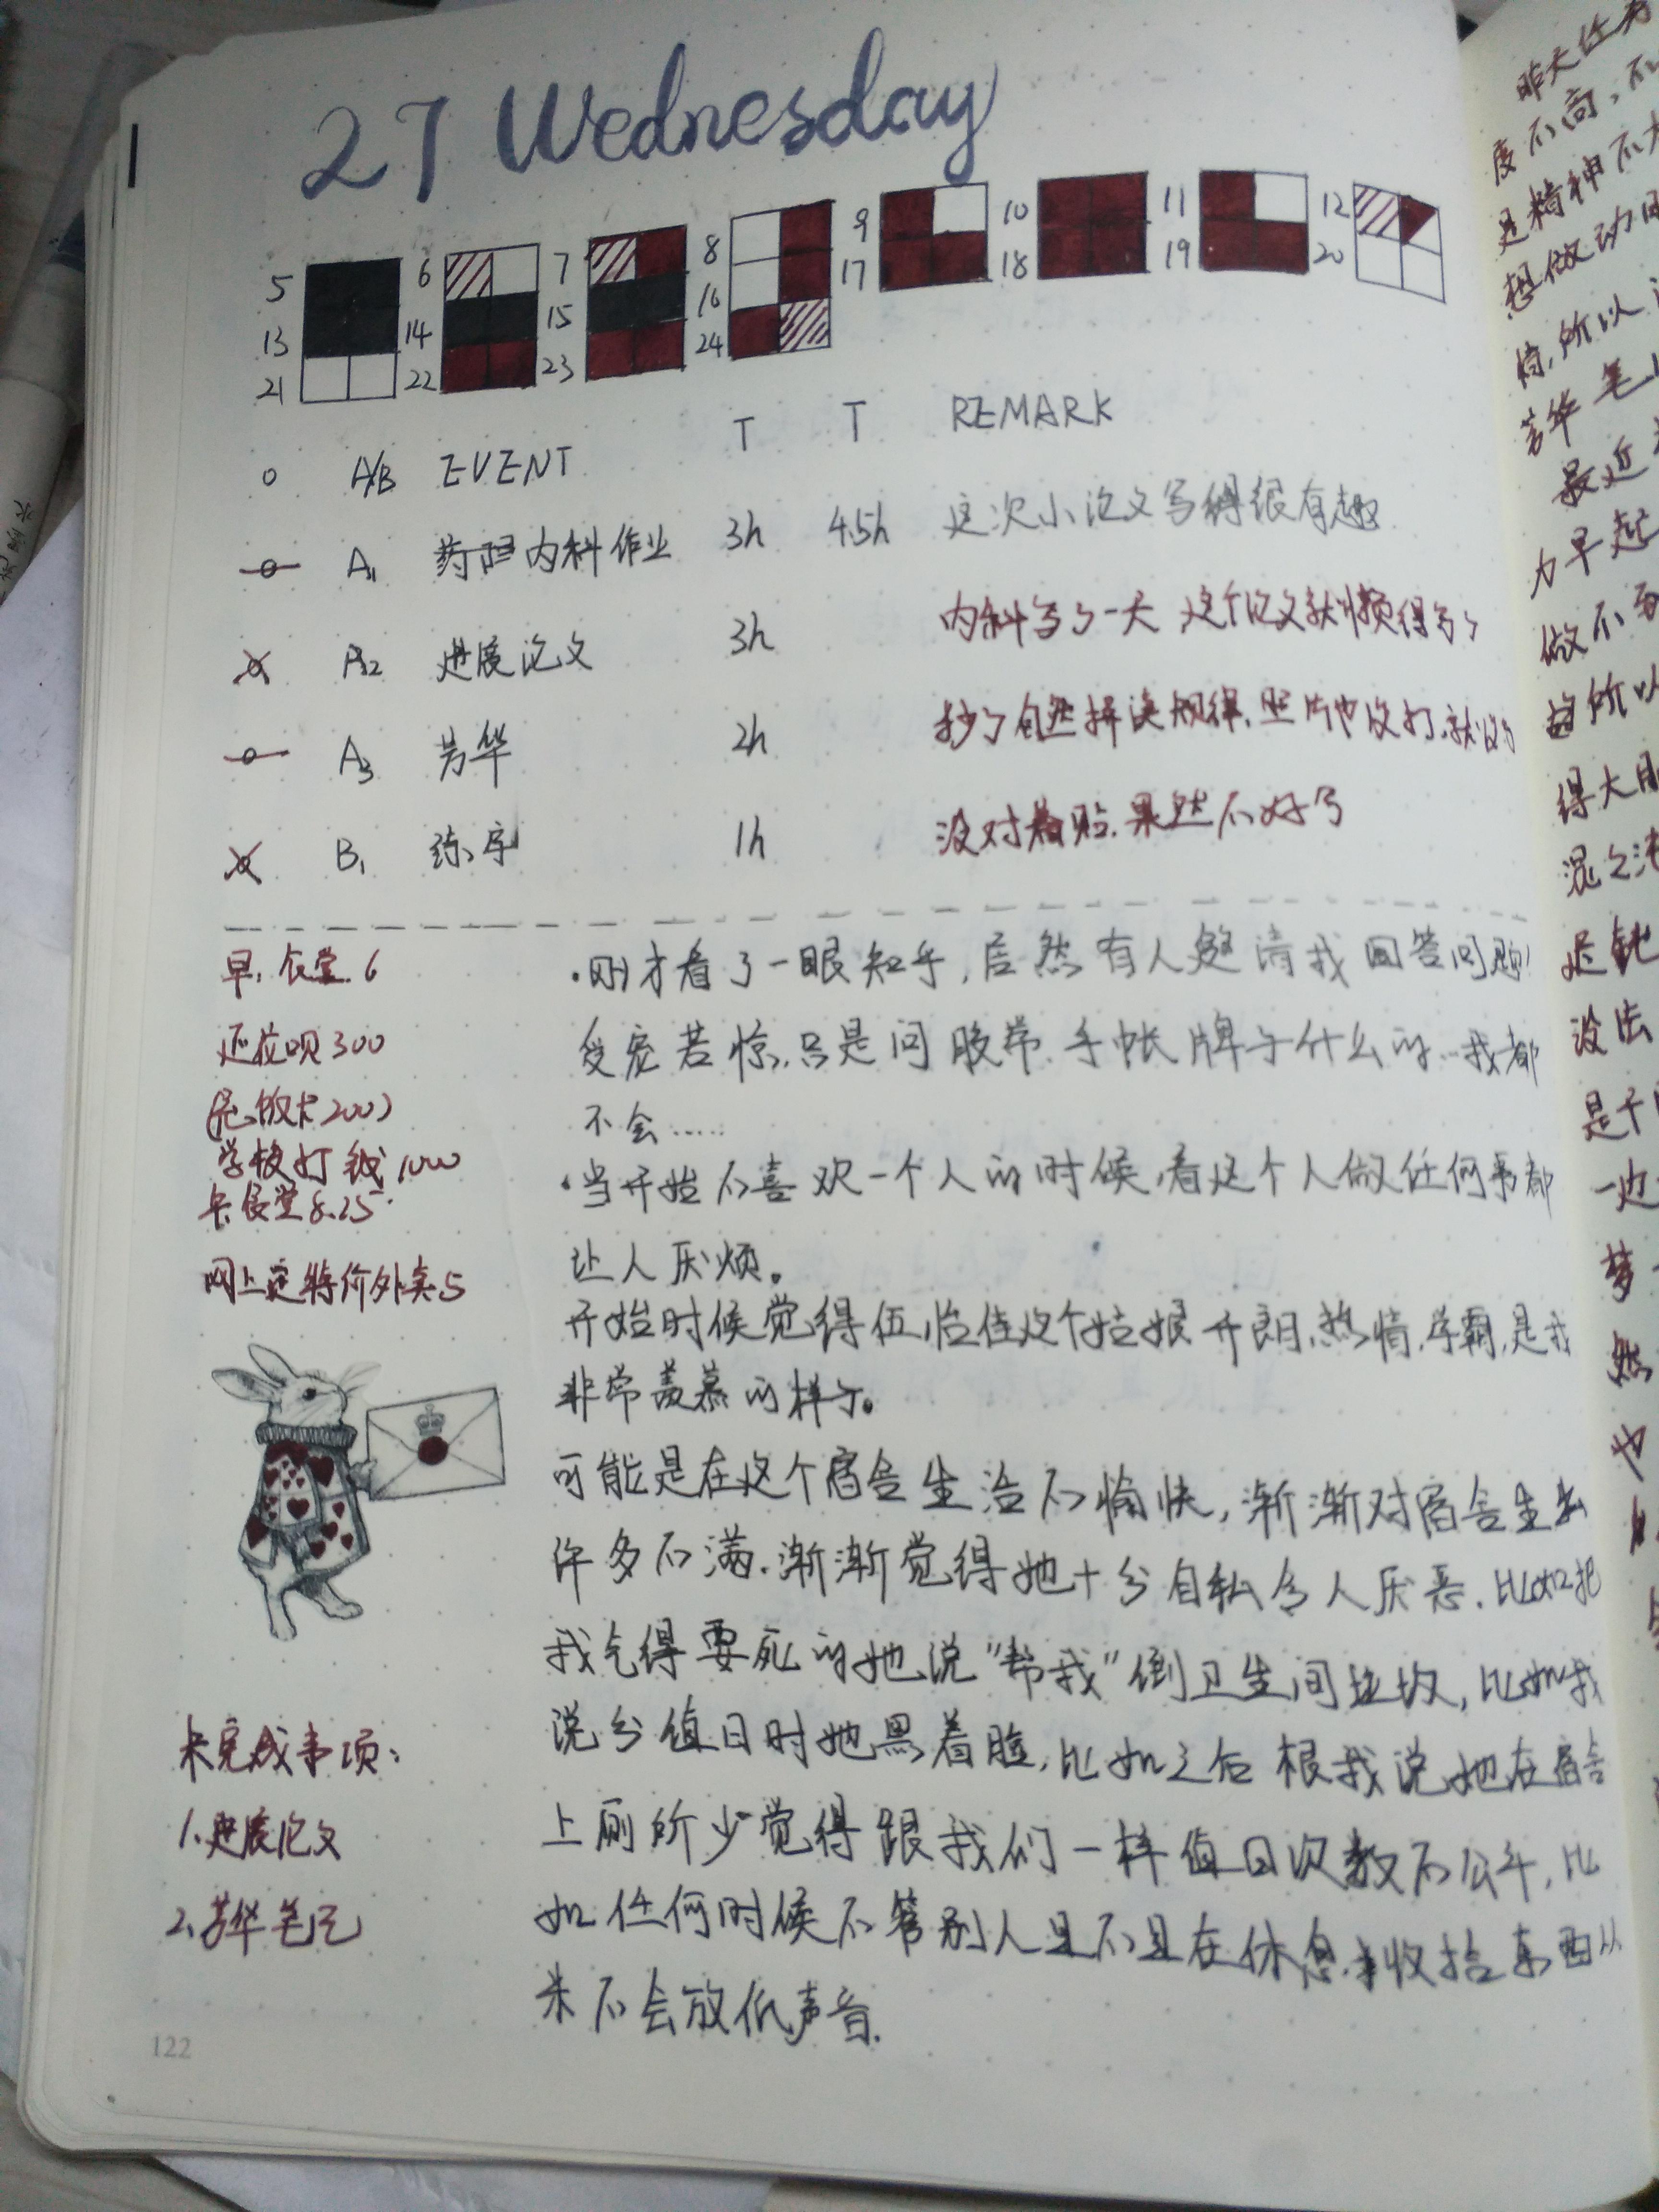 27 Wednesday
5 6 7 8 9 10 11 12
13 14 15 16 17 18 19 20
21 22 23 24
A/B EVENT T T REMARK
A1 药理内科作业 3h 4.5h 这次小论文写得很有趣
A2 进展论文 3h 内科写了一天 这个论文就懒得写了
A3 芳华 2h 抄了自然拼读规律,照片也没打,就
B1 练字 1h 没对着贴,果然不好写
早,食堂.6
还花呗300
饭卡200)
学校打钱1000
食堂8.25
网上定特价外卖5
·刚才看了一眼知乎,居然有人邀请我回答问题!
受宠若惊,只是问胶带.手帐牌子什么的…我都
不会……
·当开始不喜欢一个人的时候,看这个人做任何事都
让人厌烦。
开始时候觉得伍怡佳这个姑娘开朗,热情,学霸,是我
非常羡慕的样子。
可能是在这个宿舍生活不愉快,渐渐对宿舍生出
许多不满.渐渐觉得她十分自私令人厌恶.比如把
我气得要死的她说“帮我”倒卫生间垃圾,比如我
说分值日时她黑着脸,比如之后根我说她在宿舍
上厕所少觉得跟我们一样值日次数不公平,比
如任何时候不管别人是不是在休息,收拾东西从
来不会放低声音.
未完成事项:
1.进展论文
2.芳华笔记
122
昨天任务
度不高,不
是精神不太
想做动
情,所以
芳华笔
最近
力早起
做不到
所以
得大
混
迟钝
没法
是干
一边
梦
然
也